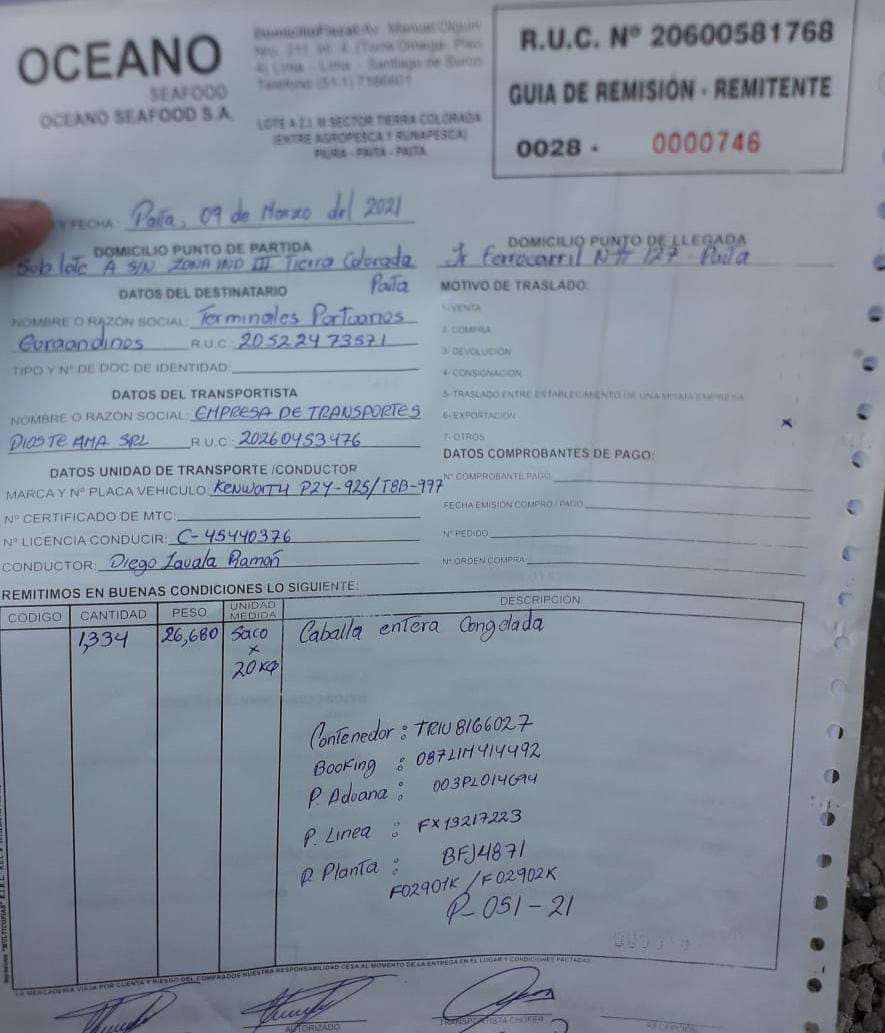 OCEANO
SEAFOOD
OCEANO SEAFOOD S.A.
Domicilio Fiscal: Av. Manuel Olguin
4) Lima - Lima - Santiago de Surco
LOTE A Z.I. III SECTOR TIERRA COLORADA
(ENTRE AGROPESCA Y RUNAPESCA)
PIURA - PAITA - PAITA
R.U.C. Nº 20600581768
GUIA DE REMISIÓN - REMITENTE
0028 - 0000746
Y FECHA: Paita, 09 de Marzo del 2021
DOMICILIO PUNTO DE PARTIDA
Sub lote A S/N ZONA IND III Tierra Colorada
Paita
DOMICILIO PUNTO DE LLEGADA
Jr Ferrocarril N# 127 - Paita
DATOS DEL DESTINATARIO
NOMBRE O RAZÓN SOCIAL: Terminales Portuarios
Euroandinos R.U.C: 20522473571
TIPO Y Nº DE DOC DE IDENTIDAD:
DATOS DEL TRANSPORTISTA
NOMBRE O RAZÓN SOCIAL: EMPRESA DE TRANSPORTES
DIOS TE AMA SRL R.U.C.: 20260453476
DATOS UNIDAD DE TRANSPORTE /CONDUCTOR
MARCA Y Nº PLACA VEHICULO: KENWORTH P2Y-925/T8B-997
Nº CERTIFICADO DE MTC:
Nº LICENCIA CONDUCIR: C-45440376
CONDUCTOR: Diego Zavala Ramón
MOTIVO DE TRASLADO:
1- VENTA
2- COMPRA
3- DEVOLUCIÓN
4- CONSIGNACION
5- TRASLADO ENTRE ESTABLECIMIENTO DE UNA MISMA EMPRESA
6- EXPORTACIÓN x
7- OTROS
DATOS COMPROBANTES DE PAGO:
Nº COMPROBANTE PAGO
FECHA EMISIÓN COMPRO / PAGO
Nº PEDIDO
Nº ORDEN COMPRA
REMITIMOS EN BUENAS CONDICIONES LO SIGUIENTE:
CÓDIGO CANTIDAD PESO UNIDAD MEDIDA DESCRIPCIÓN
1,334 26,680 Saco Caballa entera Congelada
x
20 Kg
Contenedor : TRIU 8166027
Booking : 087LIM414492
P. Aduana : 003PL014694
P. Linea : FX13217223
P. Planta : BFJ4871
F02901K / F02902K
P-051-21
LA MERCADERIA VIAJA POR CUENTA Y RIESGO DEL COMPRADOS NUESTRA RESPONSABILIDAD CESA AL MOMENTO DE LA ENTREGA EN EL LUGAR Y CONDICIONES PACTADAS
AUTORIZADO
TRANSPORTISTA CHOFER
RECEPCION